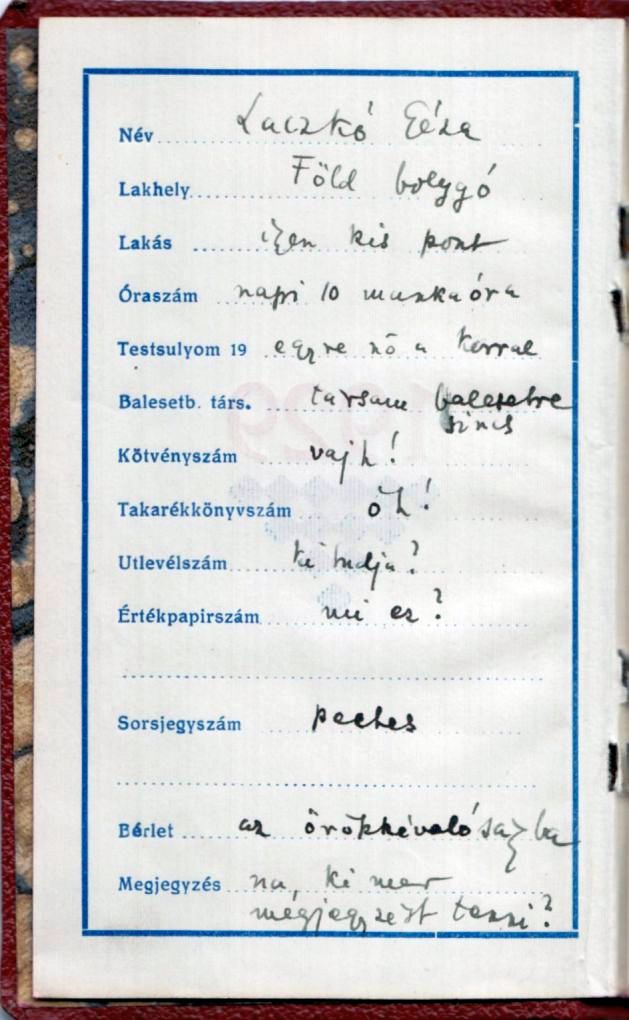 Név Laczkó Géza
Lakhely Föld bolygó
Lakás ilyen kis pont
Óraszám napi 10 munkaóra
Testsulyom 19 egyre nő a korral
Balesetb. társ. társam balesetre
sincs
Kötvényszám vajh!
Takarékkönyvszám óh!
Utlevélszám ki tudja?
Értékpapirszám mi ez?
Sorsjegyszám peches
Bérlet az örökkévalóságba
Megjegyzés na, ki mer
megjegyzést tenni?
1929